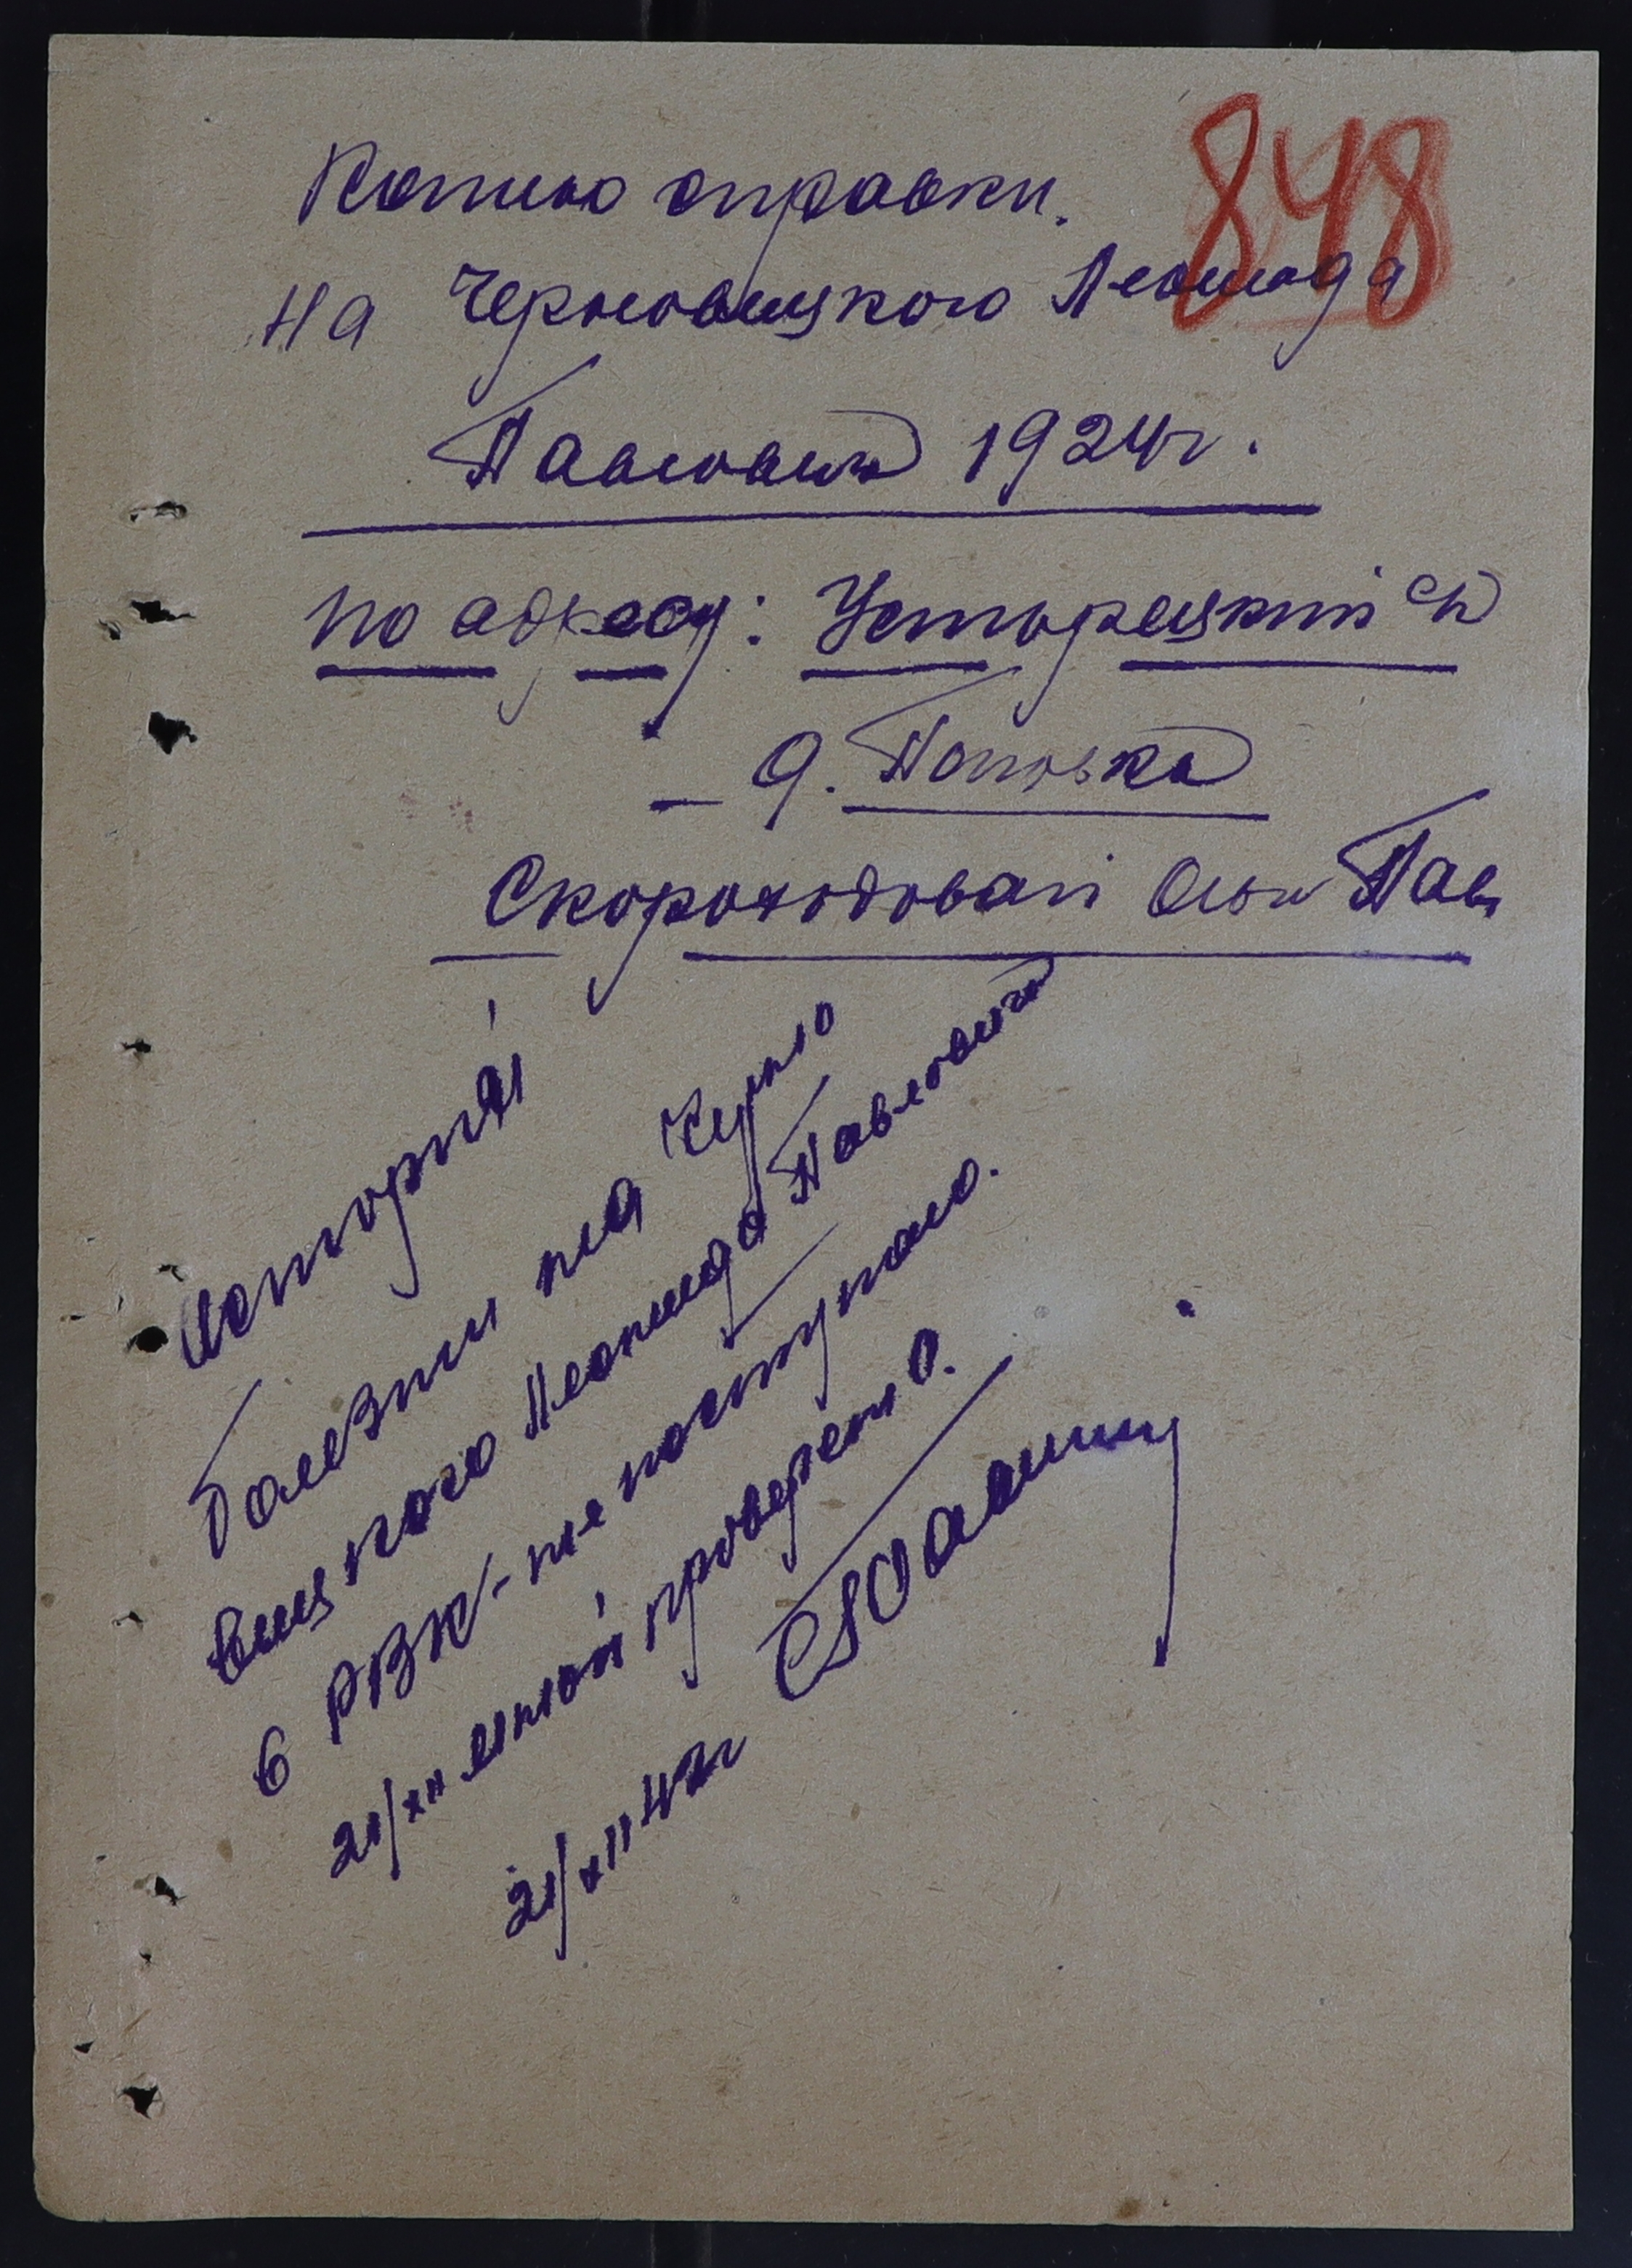 848
Копию справки.
на Черновицкого Леонида
Павловича 1924г.
по адресу: Усторецкий с/с
д. Поповка
Скороходовой Ольги Пав.
История
болезни на Черно
вицкого Леонида Павловича
в РВК - не поступало.
21/XII мной проверено.
21/XII 42г